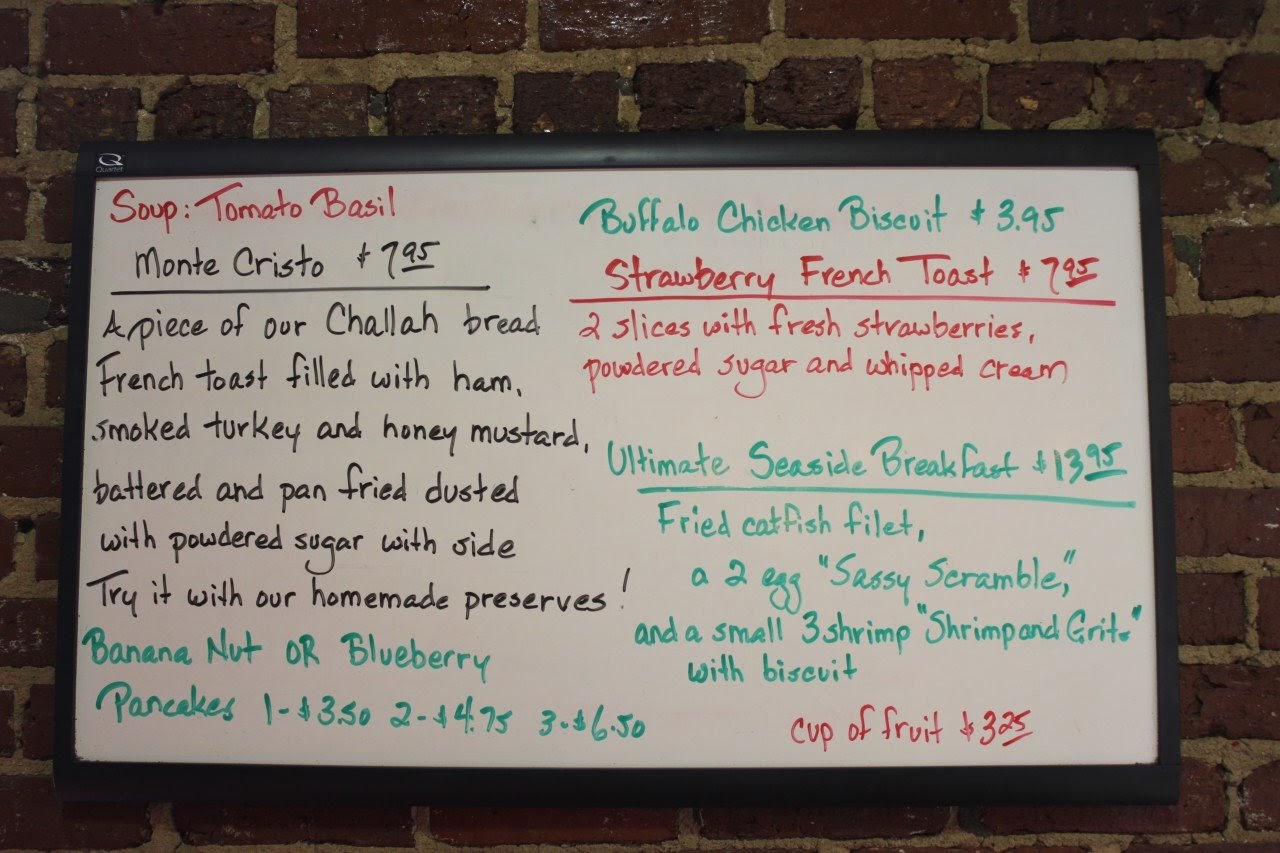 Q
Quartet
Soup: Tomato Basil
Monte Cristo $7.95
A piece of our Challah bread
French toast filled with ham,
smoked turkey and honey mustard,
battered and pan fried dusted
with powdered sugar with side
Try it with our homemade preserves!
Banana Nut OR Blueberry
Pancakes 1-$3.50 2-$4.75 3-$6.50
Buffalo Chicken Biscuit $3.95
Strawberry French Toast $7.95
2 slices with fresh strawberries,
powdered sugar and whipped cream
Ultimate Seaside Breakfast $13.95
Fried catfish filet,
a 2 egg "Sassy Scramble,"
and a small 3 shrimp "Shrimp and Grits"
with biscuit
cup of fruit $3.25